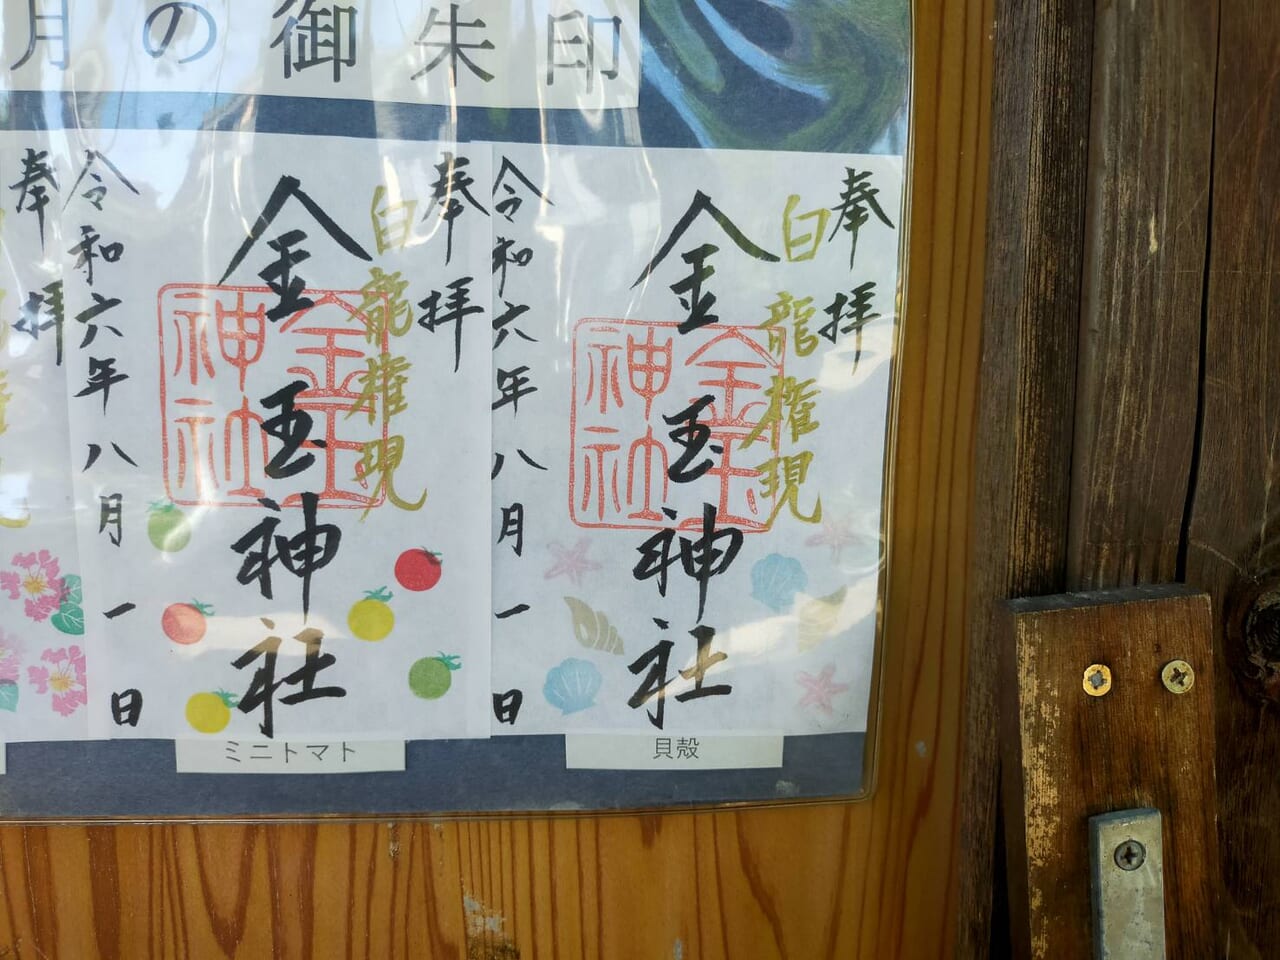 月の御朱印
奉拝
白龍権現
金玉神社
金玉神社
令和六年八月一日
貝殻
奉拝
白龍権現
金玉神社
金玉神社
令和六年八月一日
ミニトマト
奉拝